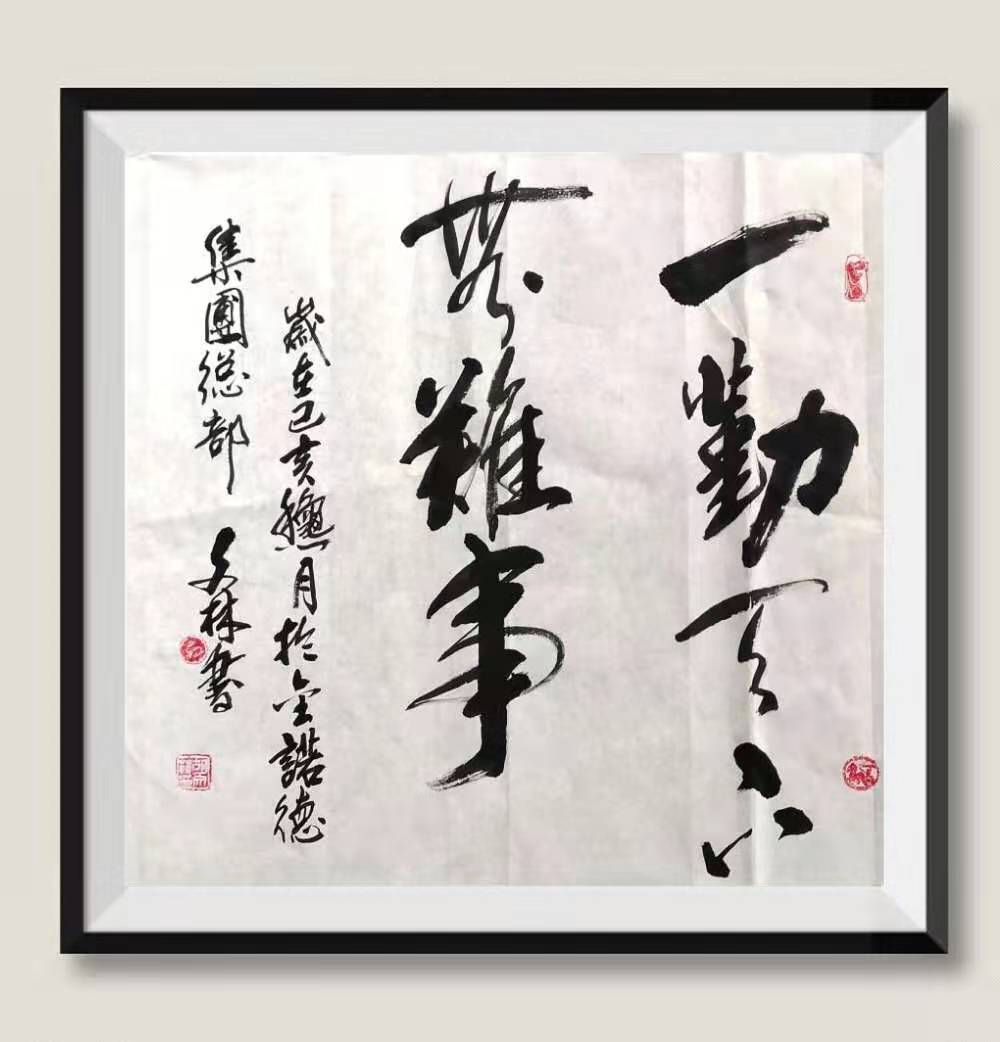 一勤天下
無難事
歲在己亥穐月於金諾德
集團總部
文林書